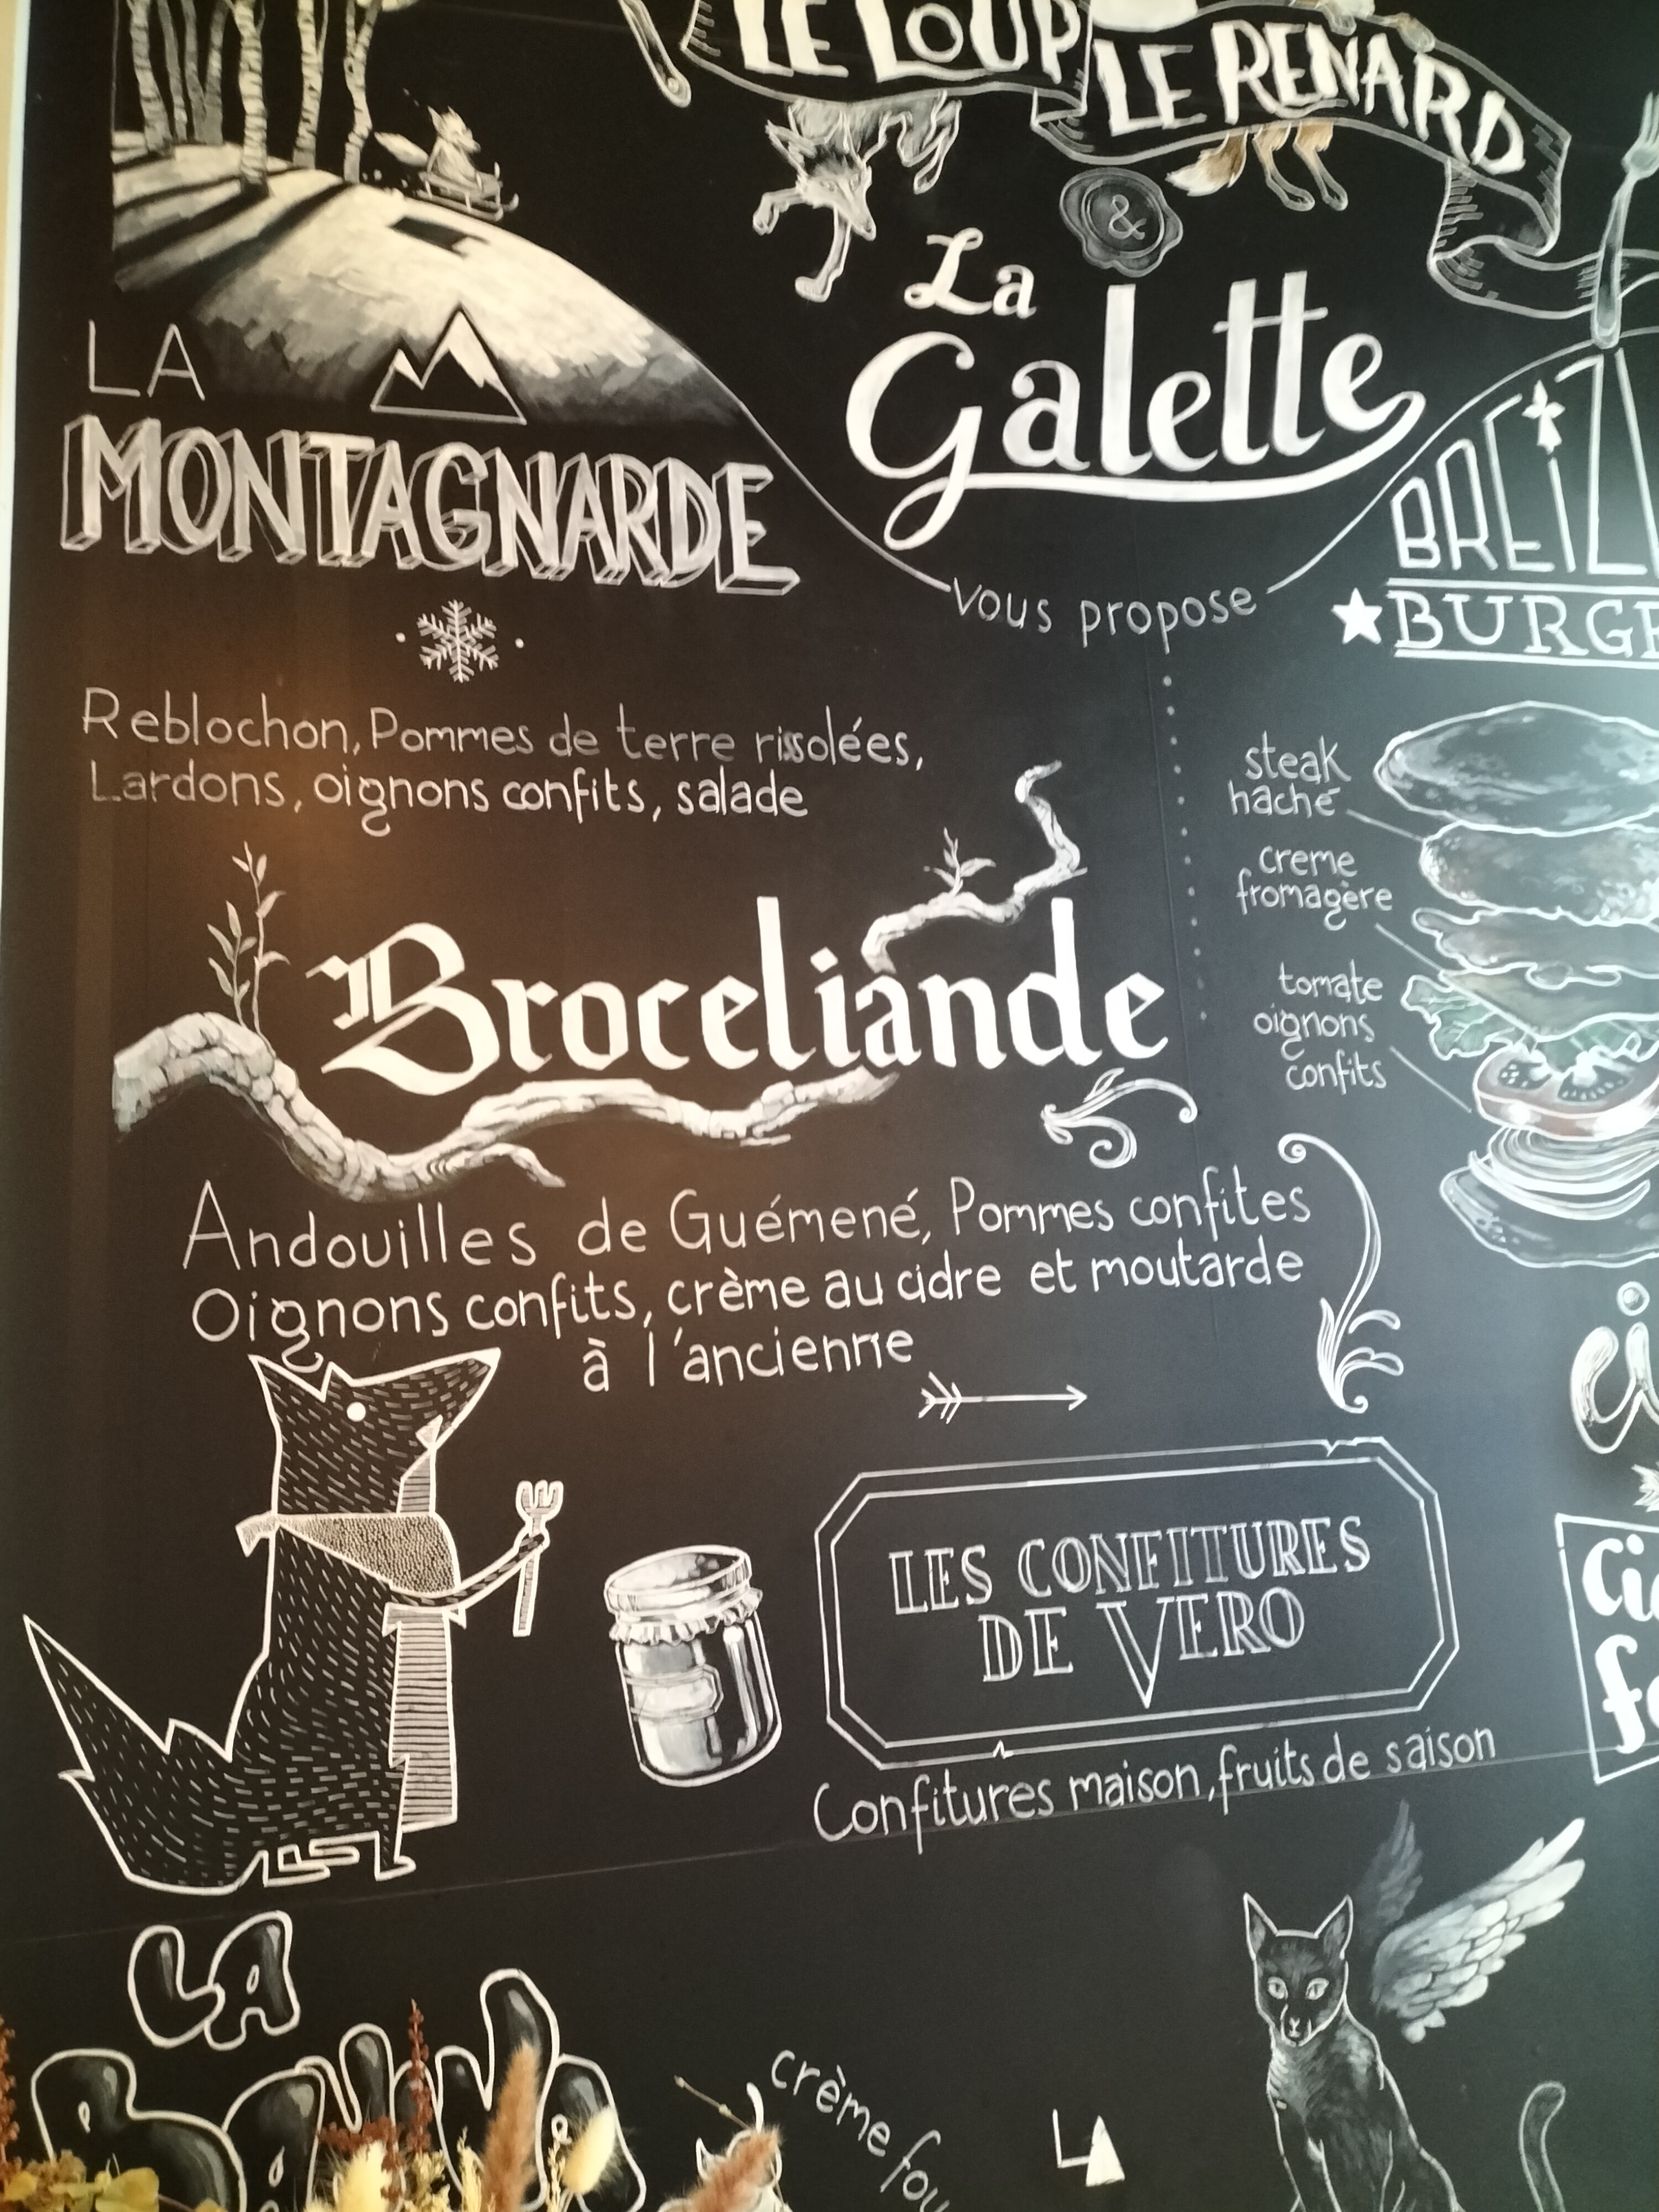 LE LOUP
LE RENARD
&
La
Galette
vous propose
LA
MONTAGNARDE
Reblochon, Pommes de terre rissolées,
Lardons, oignons confits, salade
Broceliande
Andouilles de Guémené, Pommes confites
Oignons confits, crème au cidre et moutarde
à l'ancienne
LES CONFITURES
DE VERO
Confitures maison, fruits de saison
steak
haché
creme
fromagère
tomate
oignons
confits
LA
crème
LA